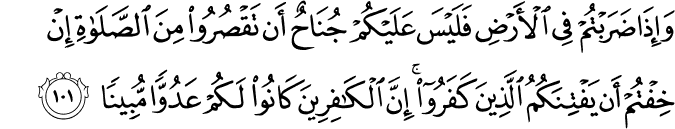 وَإِذَا ضَرَبْتُمْ فِي ٱلْأَرْضِ فَلَيْسَ عَلَيْكُمْ جُنَاحٌ أَن تَقْصُرُوا۟ مِنَ ٱلصَّلَوٰةِ إِنْ
خِفْتُمْ أَن يَفْتِنَكُمُ ٱلَّذِينَ كَفَرُوٓا۟ ۚ إِنَّ ٱلْكَـٰفِرِينَ كَانُوا۟ لَكُمْ عَدُوًّا مُّبِينًا ١٠١